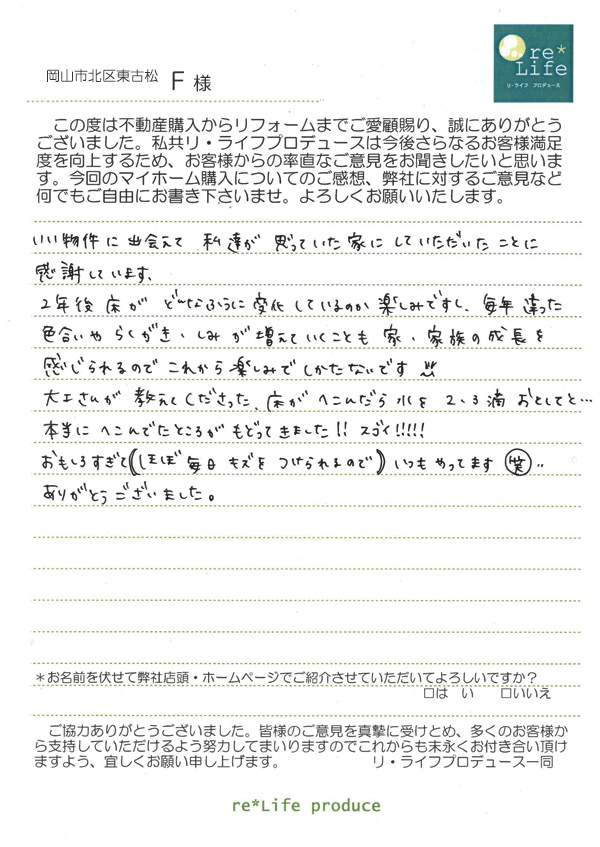 岡山市北区東古松 F 様
re*
Life
リ・ライフ プロデュース
この度は不動産購入からリフォームまでご愛顧賜り、誠にありがとう
ございました。私共リ・ライフプロデュースは今後さらなるお客様満足
度を向上するため、お客様からの率直なご意見をお聞きしたいと思いま
す。今回のマイホーム購入についてのご感想、弊社に対するご意見など
何でもご自由にお書き下さいませ。よろしくお願いいたします。
いい物件に出会えて 私達が思っていた家にしていただいたことに
感謝しています。
2年後 床が どんなふうに変化しているのか楽しみですし、毎年違った
色合いや らくがき・しみが増えていくことも 家・家族の成長を
感じられるので これから楽しみでしかたないです
大工さんが 教えてくださった、床が へこんだら 水を 2、3滴 おとしてと…
本当に へこんでたところが もどってきました!! スゴイ!!!!!
おもしろすぎて(ほぼ毎日 キズを つけられるので) いつも やってます 笑‥
ありがとうございました。
*お名前を伏せて弊社店頭・ホームページでご紹介させていただいてよろしいですか?
□は い □いいえ
ご協力ありがとうございました。皆様のご意見を真摯に受けとめ、多くのお客様か
ら支持していただけるよう努力してまいりますのでこれからも末永くお付き合い頂け
ますよう、宜しくお願い申し上げます。 リ・ライフプロデュース一同
re*Life produce